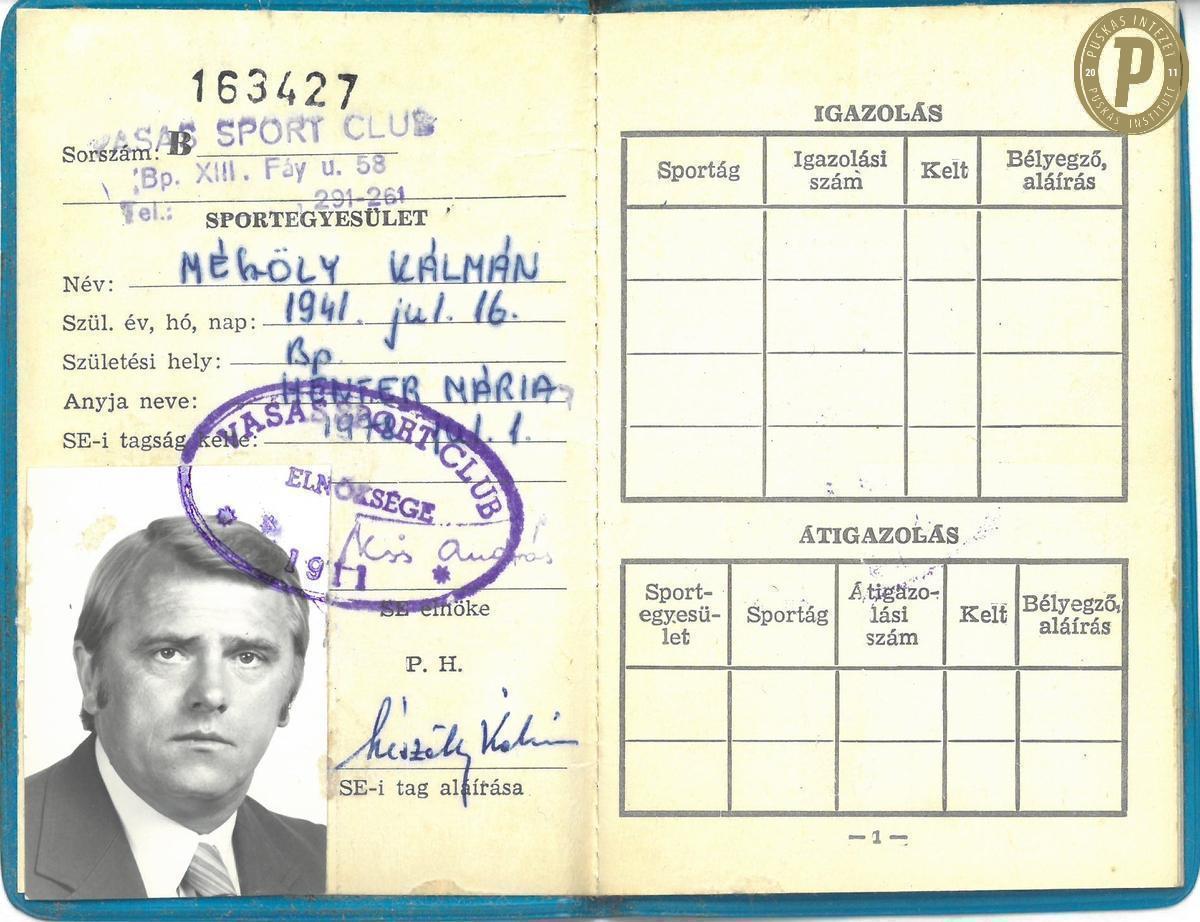 163427
VASAS SPORT CLUB
Sorszám: B
Bp. XIII. Fáy u. 58
Tel.: 291-261
SPORTEGYESÜLET
Név: MÉSZÖLY KÁLMÁN
Szül. év, hó, nap: 1941. jul. 16.
Születési hely: Bp.
Anyja neve: HENFER MÁRIA
SE-i tagság kelte: 1978. jul. 1.
VASAS SPORT CLUB
ELNÖKSÉGE
1911
Kiss András
SE elnöke
P. H.
Mészöly Kálmán
SE-i tag aláírása
PUSKÁS INTÉZET
20 P 11
PUSKÁS INSTITUTE
IGAZOLÁS
Sportág
Igazolási
szám
Kelt
Bélyegző,
aláírás
ÁTIGAZOLÁS
Sport-
egyesü-
let
Sportág
Átigazo-
lási
szám
Kelt
Bélyegző,
aláírás
— 1 —